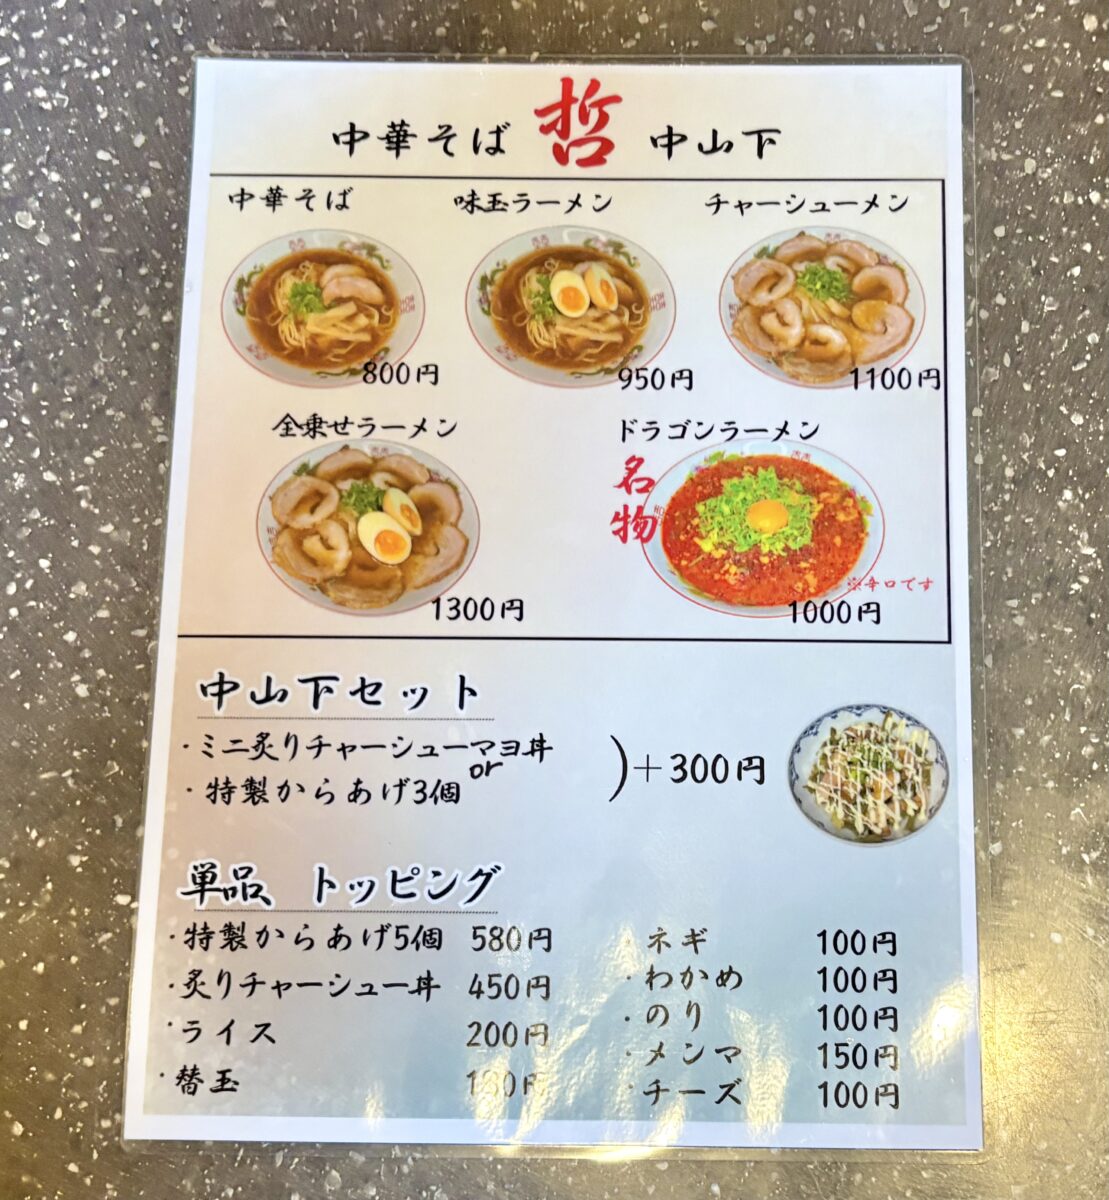 中華そば 哲 中山下
中華そば 味玉ラーメン チャーシューメン
800円 950円 1100円
全乗せラーメン ドラゴンラーメン
名物
※辛口です
1300円 1000円
中山下セット
・ミニ炙りチャーシューマヨ丼
or
・特製からあげ3個
)+300円
単品、トッピング
・特製からあげ5個 580円
・炙りチャーシュー丼 450円
・ライス 200円
・替玉
・ネギ 100円
・わかめ 100円
・のり 100円
・メンマ 150円
・チーズ 100円